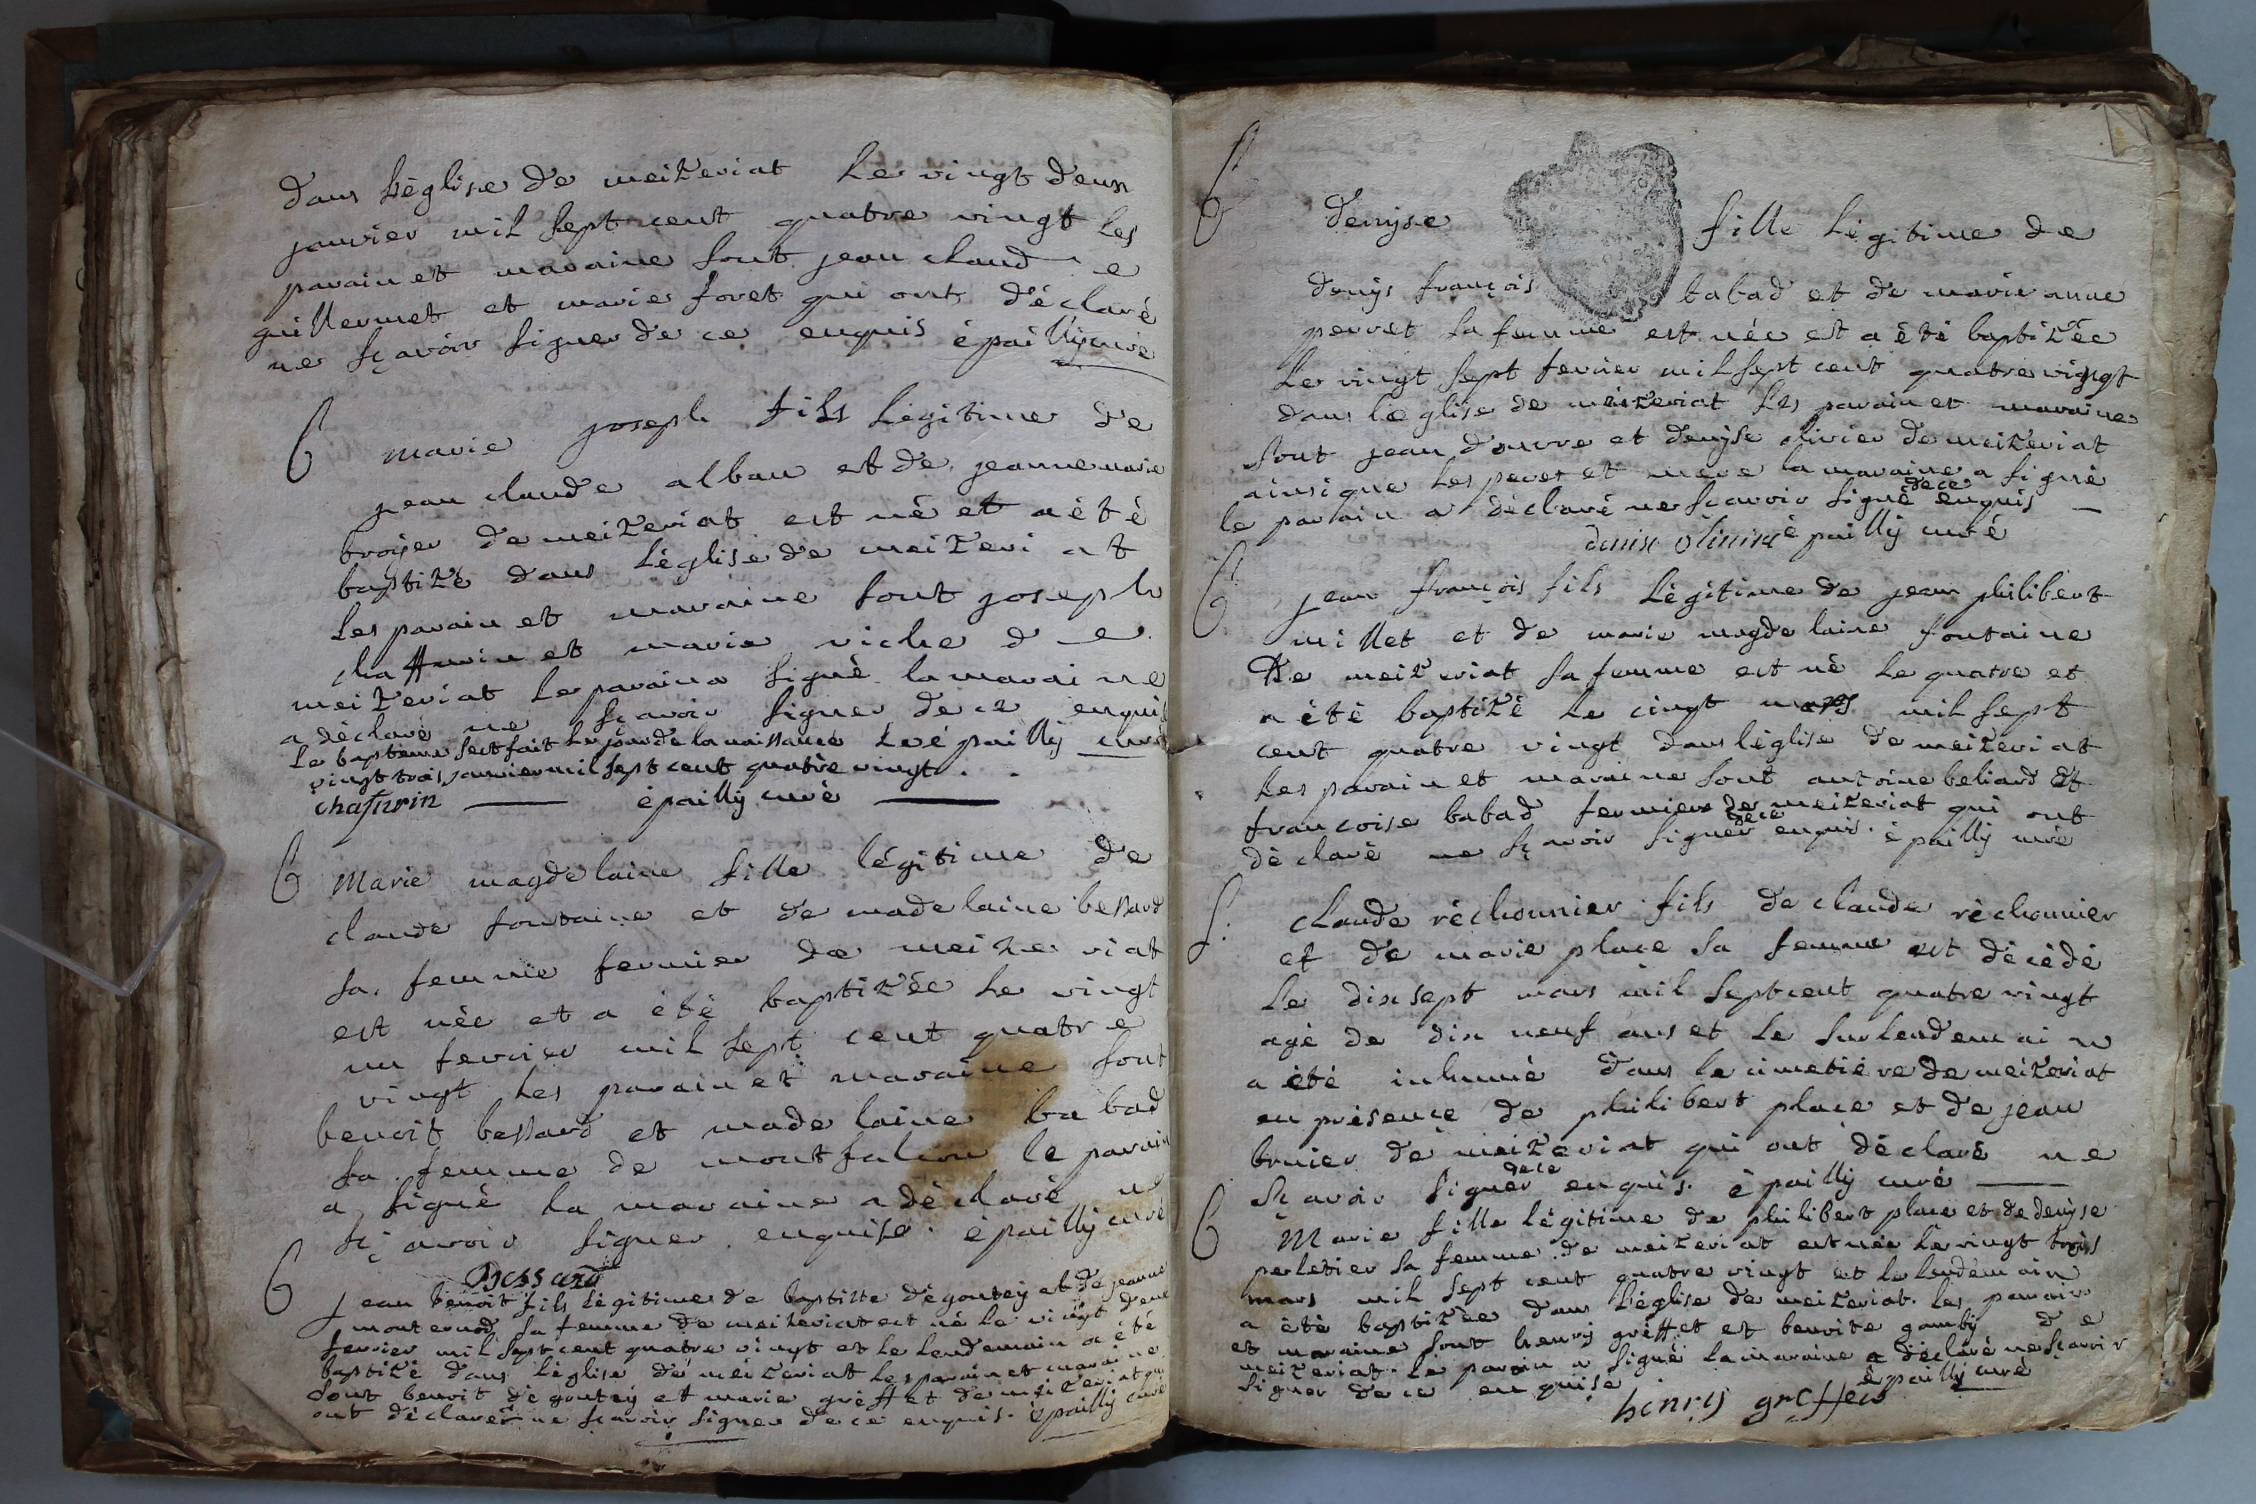 dans l'église de meizeriat le vingt deux
janvier mil sept cent quatre vingt les
parain et maraine sont jean claude
guillermet et marie foret qui ont déclaré
ne sçavoir signer de ce enquis épailly curé
B marie joseph fils légitime de
jean claude alban et de jeanne marie
broyer de meizeriat est né et a été
baptizé dans l'église de meizeriat
les parain et maraine sont joseph
chassurin et marie viche de
meizeriat le parain a signé la maraine
a déclaré ne sçavoir signer de ce enquis
le baptême s'est fait le jour de la naissance le épailly curé
vingt trois janvier mil sept cent quatre vingt.
chassurin épailly curé
B Marie magdelaine fille légitime de
claude fontaine et de madelaine bessard
sa femme fermier de meizeriat
est née et a été baptizée le vingt
un fevrier mil sept cent quatre
vingt les parain et maraine sont
benoit bessard et madelaine babad
sa femme de montfalcon le parain
a signé la maraine a déclaré ne
sçavoir signer enquise. épailly curé
Bessard
B jean benoit fils légitime de baptiste dégoutey et de jeanne
monternod sa femme de meizeriat est né le vingt deux
fevrier mil sept cent quatre vingt et le lendemain a été
baptizé dans l'église de meizeriat les parain et maraine
sont benoit dégoutey et marie gréffet de meizeriat qui
ont déclaré ne sçavoir signer de ce enquis. épailly curé
B denyse fille légitime de
denys françois babad et de marie anne
perret sa femme est née est a été baptizée
le vingt sept fevrier mil sept cent quatre vingt
dans l'eglise de meizeriat les parain et maraine
sont jean douvre et denyse olivier de meizeriat
ainsi que les peres et mere la maraine a signé
le parain a déclaré ne sçavoir signé de ce enquis
denise olivier épailly curé
B jean françois fils légitime de jean philibert
millet et de marie magdelaine fontaine
de meizeriat sa femme est né le quatre et
a été baptizé le cinqt mars mil sept
cent quatre vingt dans l'église de meizeriat
les parain et maraine sont antoine beliard et
françoise babad fermiers de meizeriat qui ont
déclaré ne sçavoir signer de ce enquis. épailly curé
S. claude réchounier fils de claude réchounier
et de marie place sa femme est décédé
le dix sept mars mil sept cent quatre vingt
agé de dix neuf ans et le surlendemain
a été inhumé dans le cimetiére de meizeriat
en présence de philibert place et de jean
brüier de meizeriat qui ont déclaré ne
sçavoir signer de ce enquis. épailly curé
B Marie fille légitime de philibert place et de denyse
perletier sa femme de meizeriat est née le vingt trois
mars mil sept cent quatre vingt et le lendemain
a été baptizée dans l'église de meizeriat. les parain
et maraine sont henry gréffet et benoite gamby de
meizeriat. le parain a signé la maraine a déclaré ne sçavoir
signer de ce enquise épailly curé
henry greffet